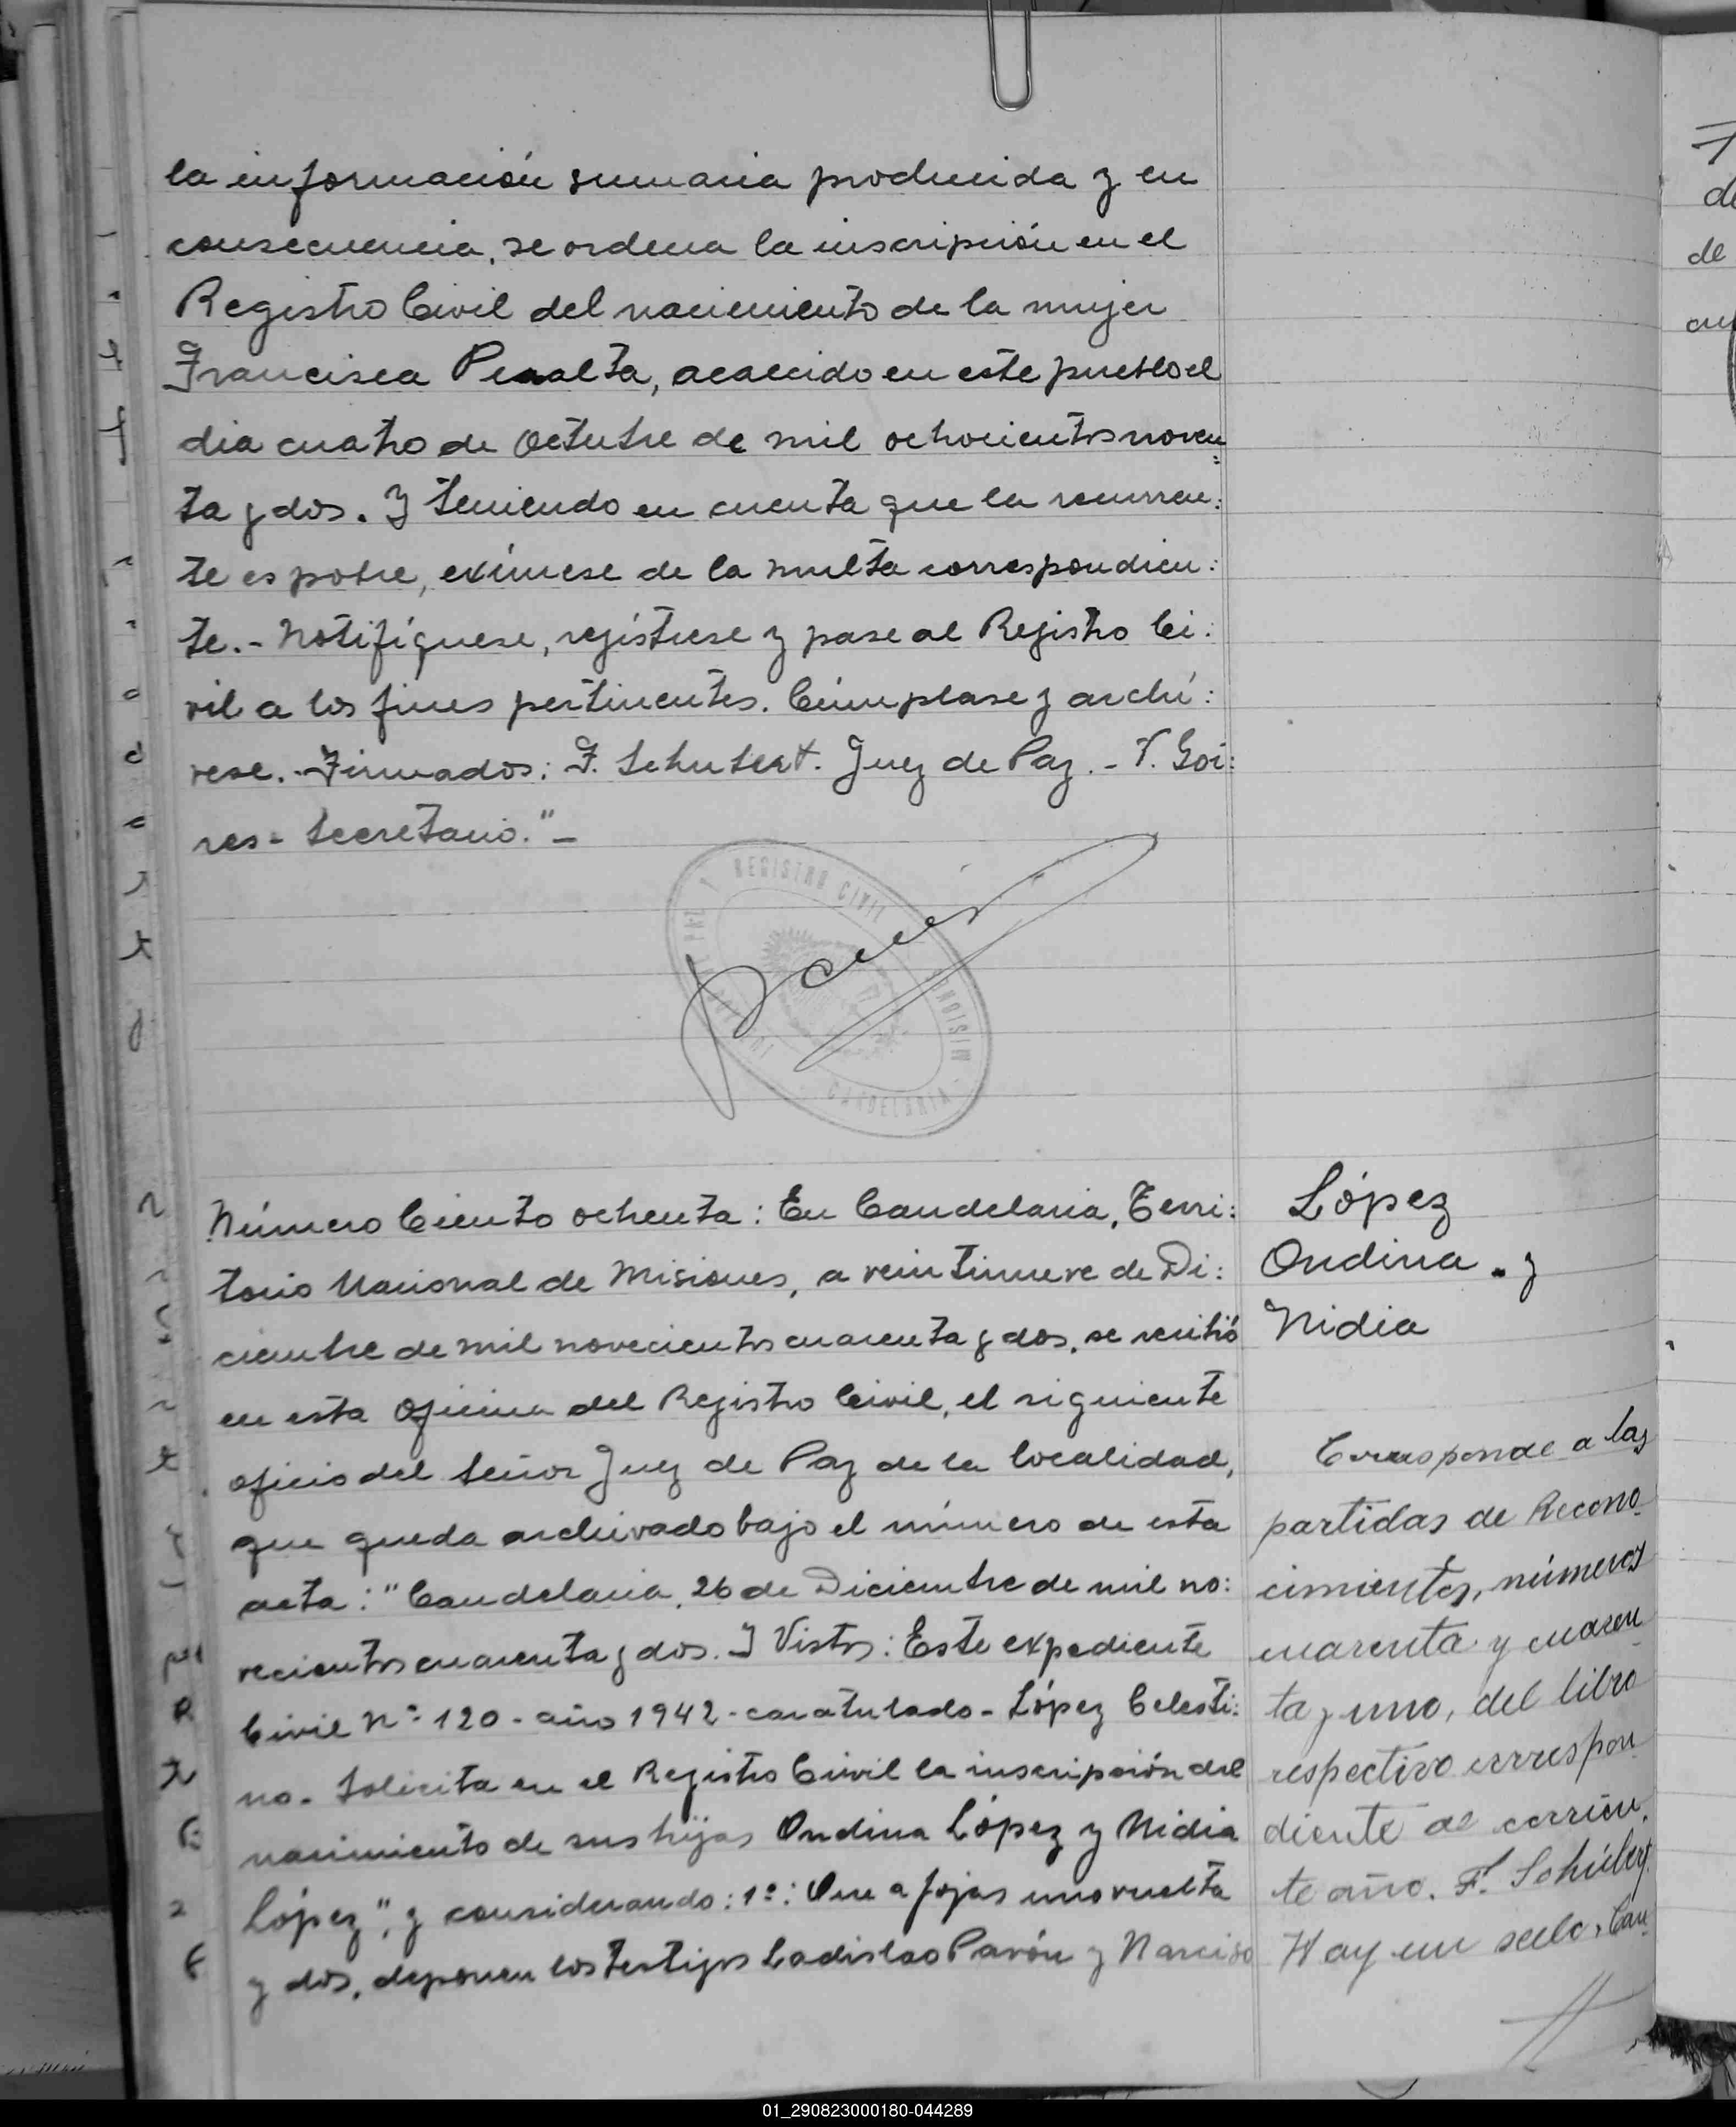 la información sumaria producida y en
consecuencia, se ordena la inscripción en el
Registro Civil del nacimiento de la mujer
Francisca Peralta, acaecido en este pueblo el
dia cuatro de Octubre de mil ochocientos noven=
ta y dos. Y teniendo en cuenta que la recurren:
te es pobre, exímese de la multa correspondien:
te.- Notifíquese, regístrese y pase al Registro Ci:
vil a los fines pertinentes. Cúmplase y archí:
vese.- Firmados: F. Schubert. Juez de Paz.- V. Goi:
res- Secretario."-
REGISTRO CIVIL
MISIONES
CANDELARIA
Número Ciento ochenta: En Candelaria, Terri:
torio Nacional de Misiones, a veintinueve de Di:
ciembre de mil novecientos cuarenta y dos, se recibió
en esta Oficina del Registro Civil, el siguiente
oficio del Señor Juez de Paz de la localidad,
que queda archivado bajo el número de esta
acta: "Candelaria, 26 de Diciembre de mil no:
vecientos cuarenta y dos. Y Vistos: Este expediente
Civil Nº 120 - año 1942 - caratulado - López Celesti:
no. Solicita en el Registro Civil la inscripción del
nacimiento de sus hijas Ondina López y Nidia
López", y considerando: 1º: Que a fojas uno vuelta
y dos, deponen los testigos Ladislao Pavón y Narciso
López
Ondina - y
Nidia
Corresponde a las
partidas de Recono
cimientos, números
cuarenta y cuaren
ta y uno, del libro
respectivo correspon
diente al corrien
te año. F. Schúbert.
Hay un sello. Can
01_290823000180-044289